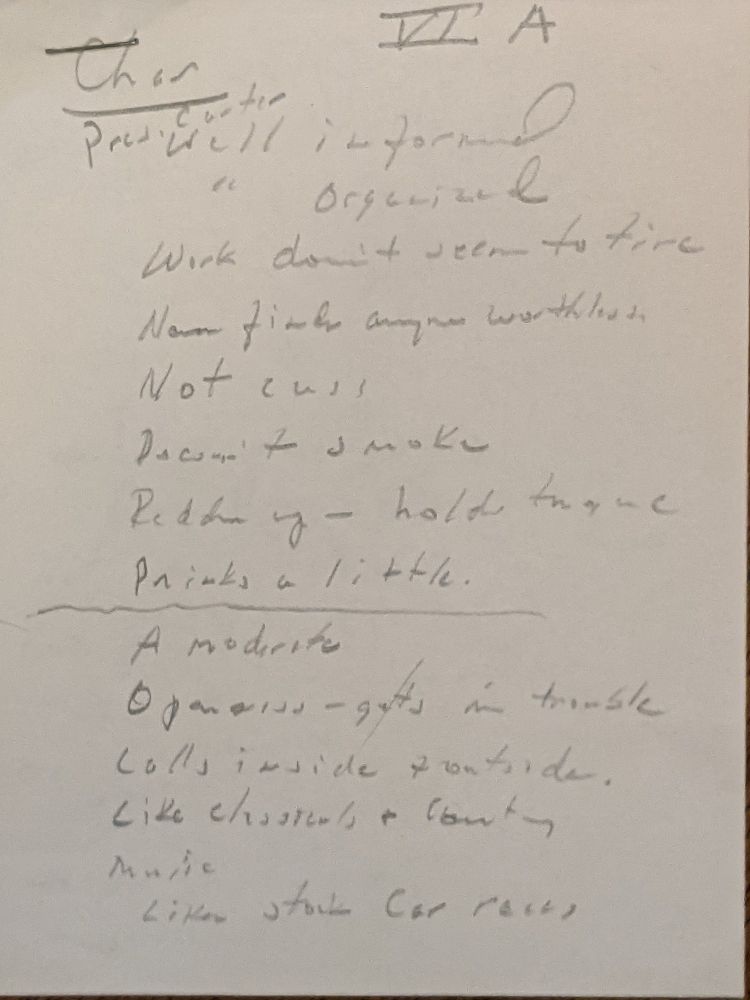 VI A
Char
Carter
Presi. Well informed
" Organized
Work don't seem to tire
finds anyone worthless.
Not cuss
Doesn't smoke
hold tongue
Drinks a little.
A moderate
Openness - gets in trouble
Calls inside + outside.
Like classicals + Country
Music
Likes stock Car races